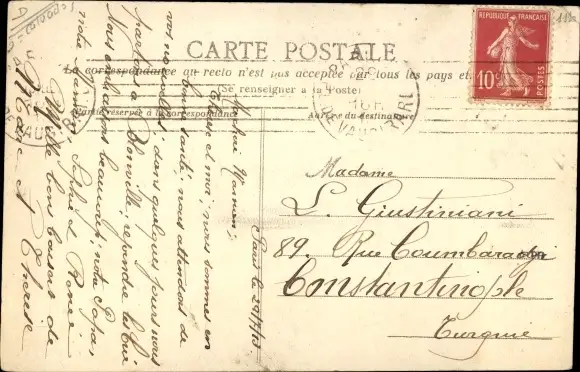 RÉPUBLIQUE FRANÇAISE
10c
POSTES
CARTE POSTALE
La correspondance au recto n'est pas acceptée par tous les pays et.
Se renseigner à la Poste
Partie réservée à la correspondance
Adresse du destinataire
R. DE VAUGIRARD
Madame
L. Giustiniani
89. Rue Coumbaradji
Constantinople
Turquie
Paris le 29/7/13
Maman,
Thérèse et moi, nous sommes en
bonne santé, nous attendons de
vos nouvelles, dans quelques jours nous
partons à Blonville,
Nous embrassons beaucoup, notre Papa,
notre Maman, et Renée
Mille bons baisers de
Marie et Thérèse